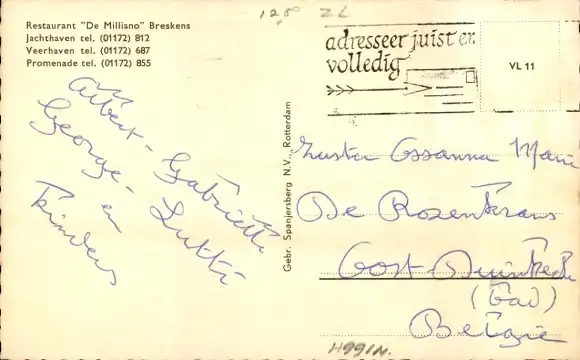 Restaurant "De Milliano" Breskens
Jachthaven tel. (01172) 812
Veerhaven tel. (01172) 687
Promenade tel. (01172) 855
128 ZL
adresseer juist en
volledig
VL 11
Albert - Gabrielle
George - Lutti
en
kinders
Gebr. Spanjersberg N.V., Rotterdam
Zuster Ossanna Marie
De Rozenkrans
Oost-Duinkerke
(Bad)
Belgie
H991N.